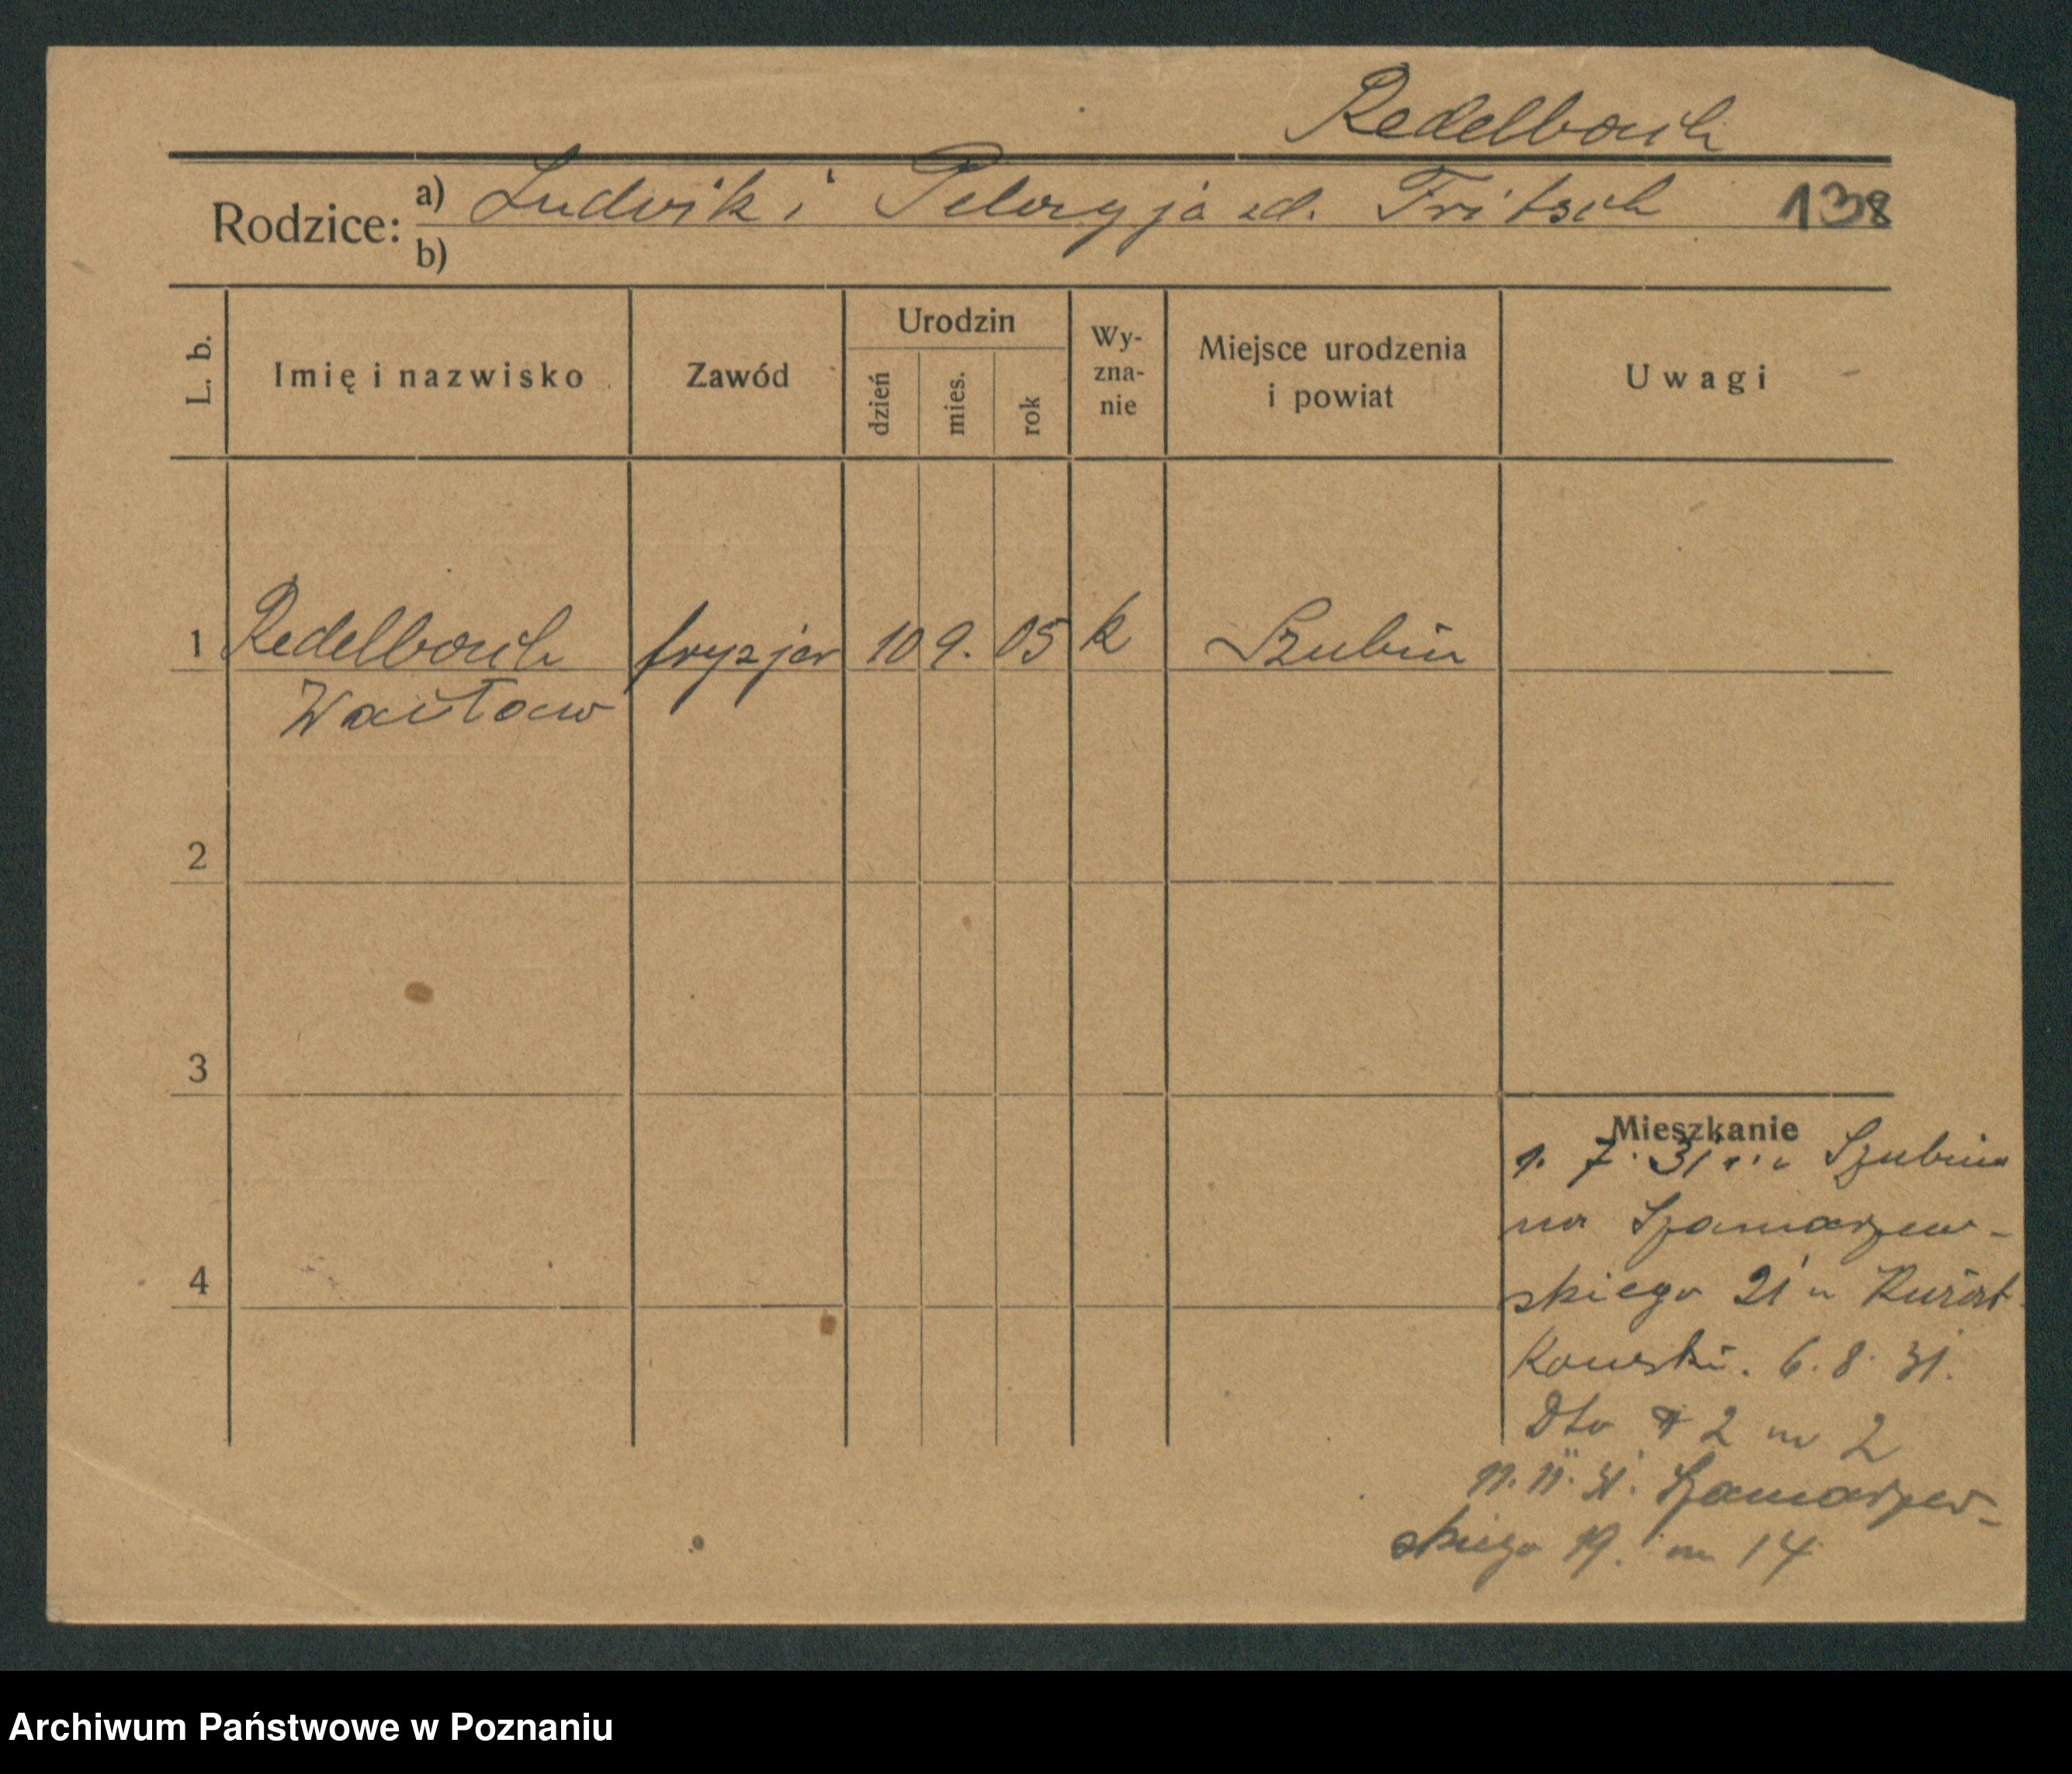 Redelbach
Rodzice: a) Ludwik i Pelagyja zd. Fritsch 138
b)
L. b. Imię i nazwisko Zawód Urodzin dzień mies. rok Wy-zna-nie Miejsce urodzenia i powiat Uwagi
1 Redelbach fryzjer 10 9. 05 k Szubin
Wacław
2
3
4
Mieszkanie
1. 7. 31 Szubina
na Szamarzew-
skiego 21 u
6. 8. 31.
Dto 2 m 2
11. 11. 31. Szamarzew-
skiego 19. m 14
Archiwum Państwowe w Poznaniu